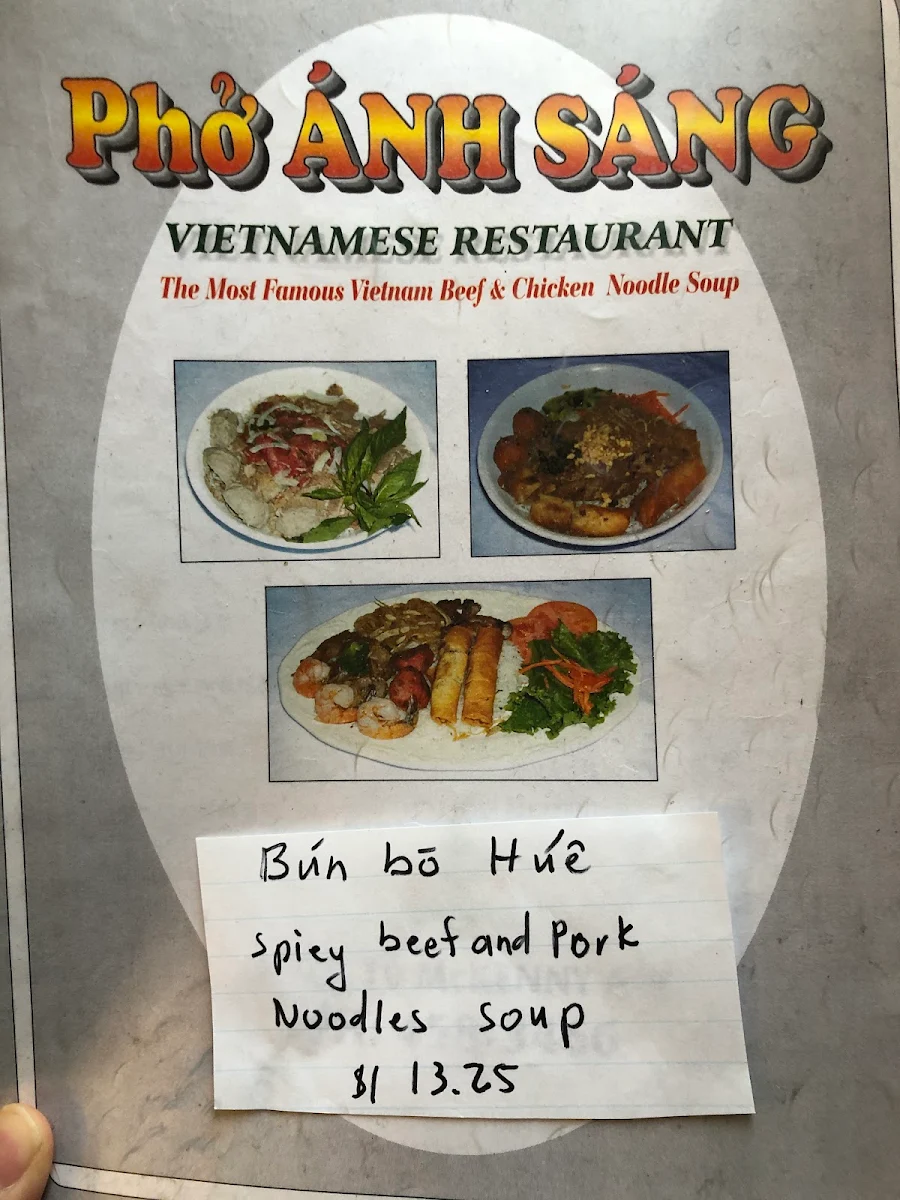 Phở ÁNH SÁNG
VIETNAMESE RESTAURANT
The Most Famous Vietnam Beef & Chicken Noodle Soup
Bún bō Húê
spicy beef and Pork
Noodles soup
$ 13.25